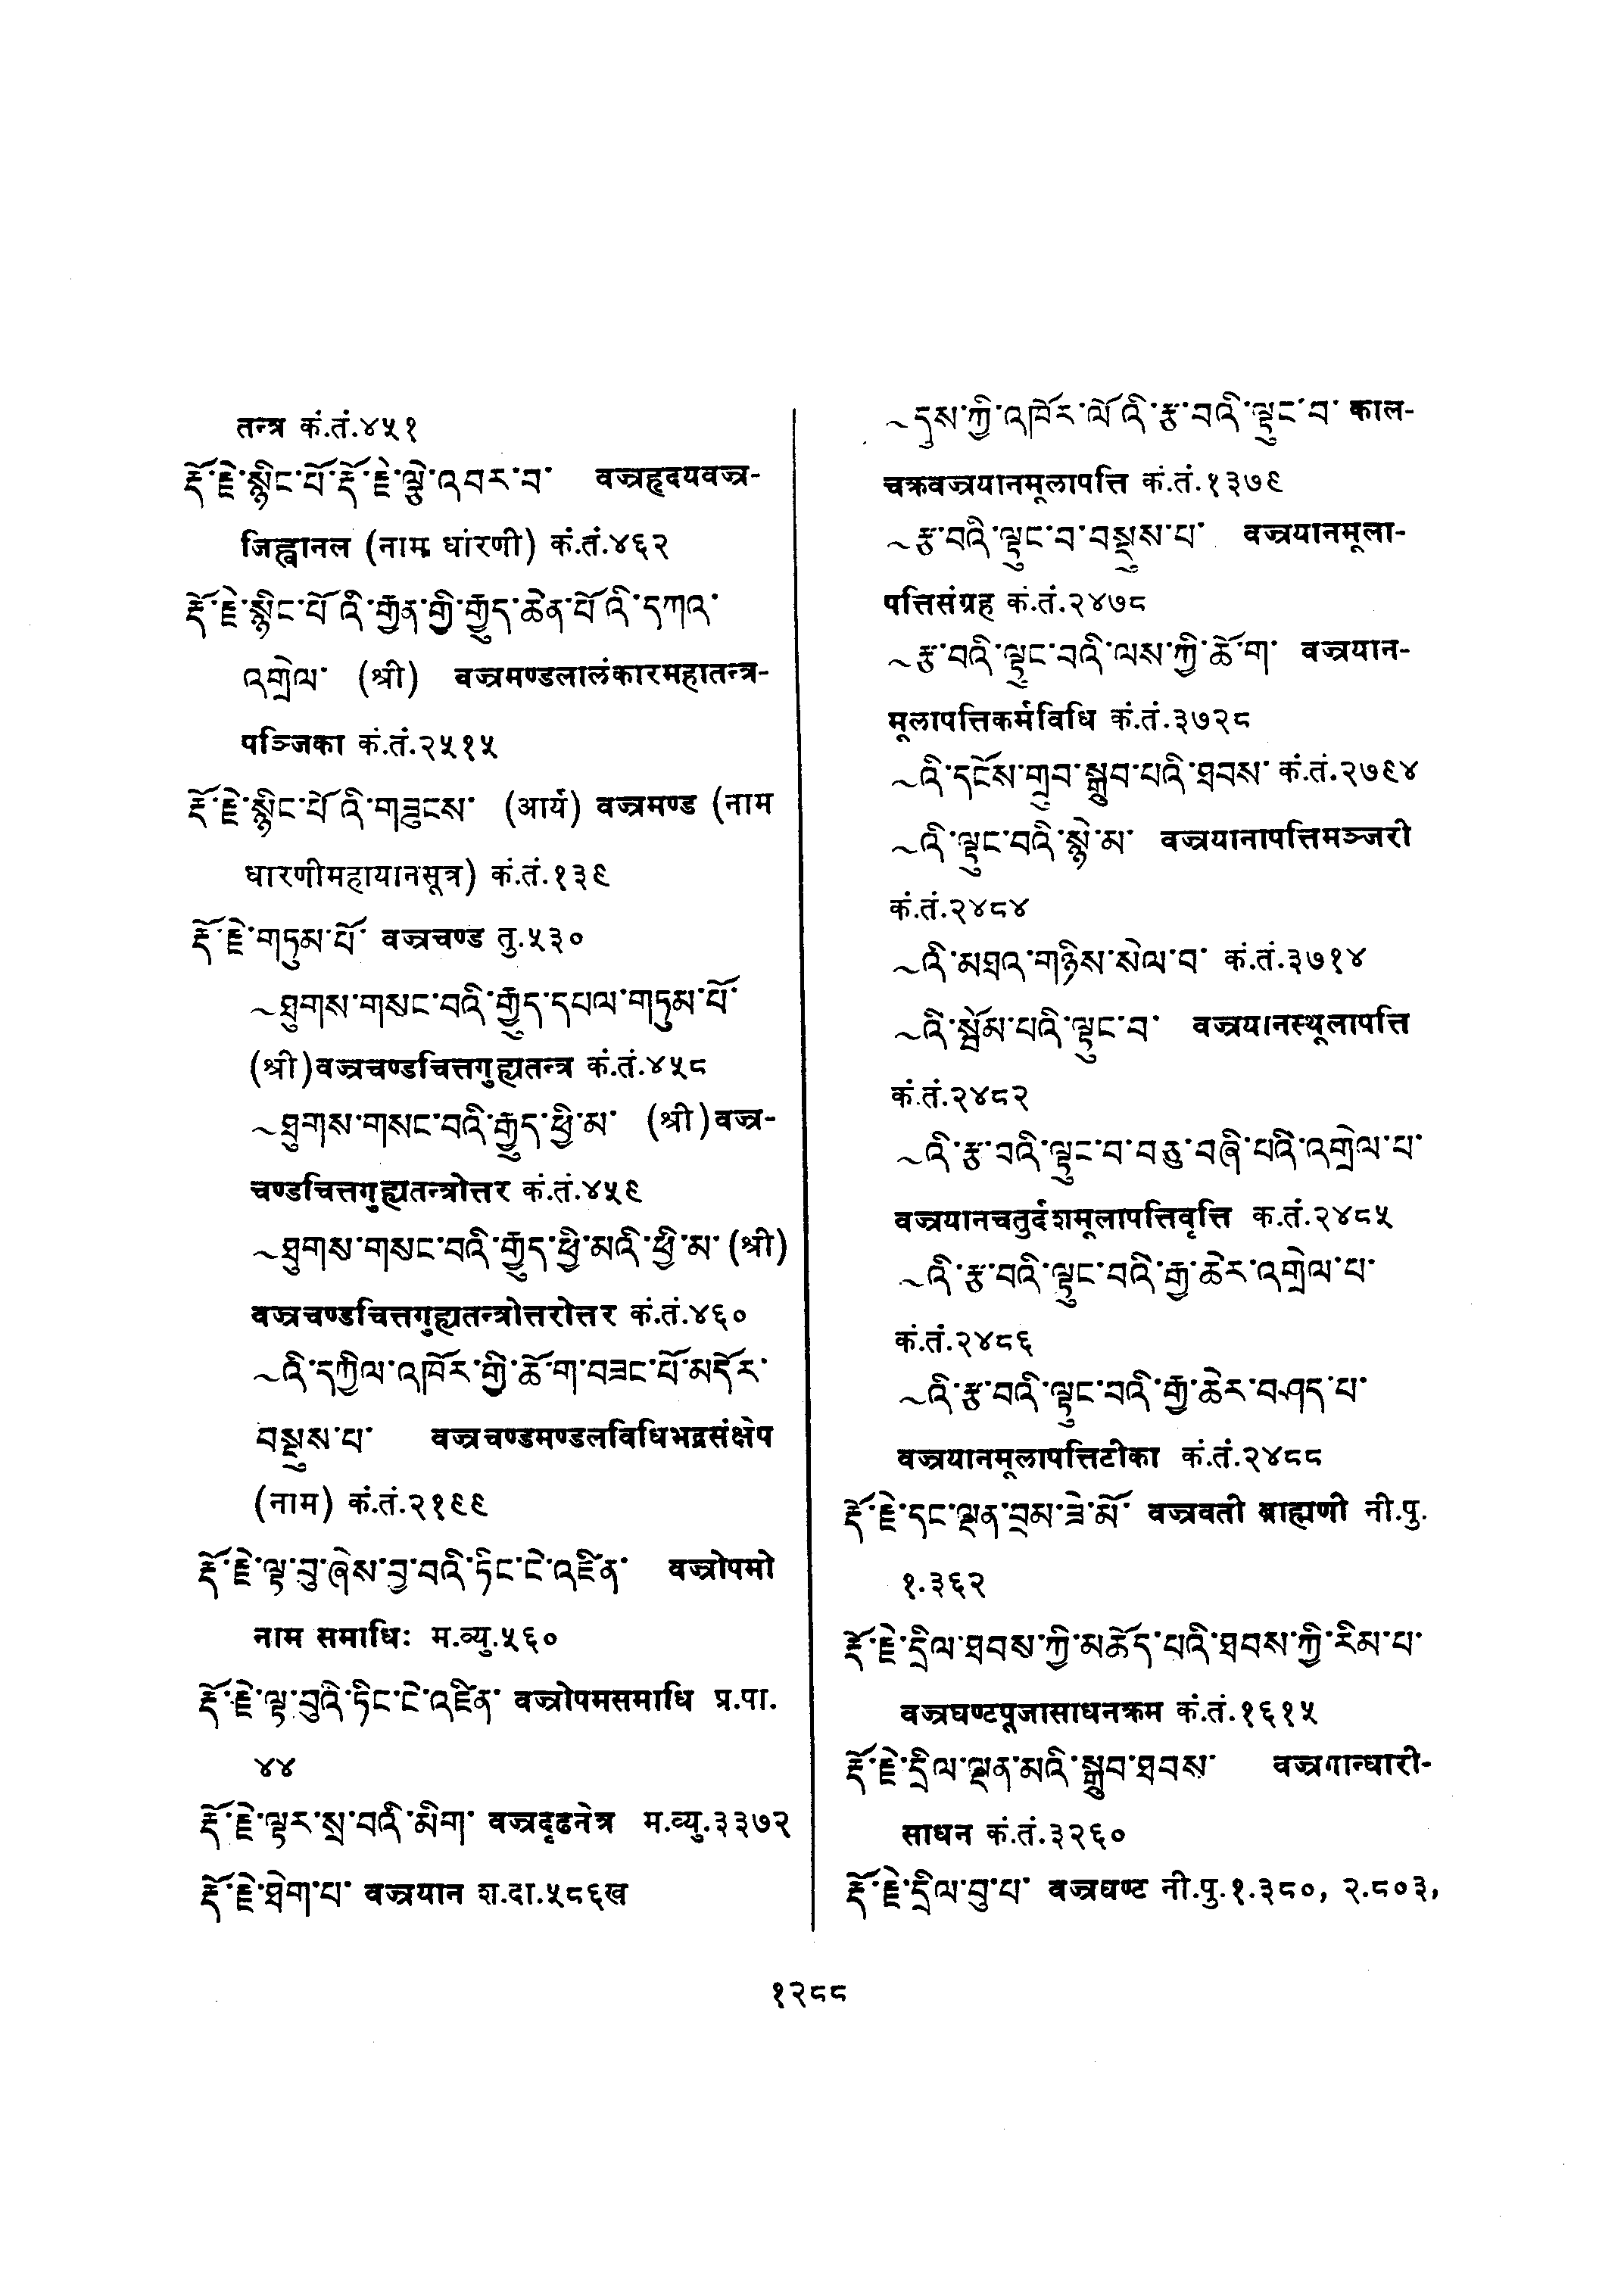 तन्त्र कं.तं.४५१
རྡོ་རྗེ་སྙིང་པོ་རྡོ་རྗེ་ལྕེ་འབར་བ་ वज्रहृदयवज्र-
जिह्वानल (नाम धारणी) कं.तं.४६२
རྡོ་རྗེ་སྙིང་པོ་འི་རྒྱན་གྱི་རྒྱུད་ཆེན་པོ་འི་དཀའ་
འགྲེལ་ (श्री) वज्रमण्डलालंकारमहातन्त्र-
पञ्जिका कं.तं.२५१५
རྡོ་རྗེ་སྙིང་པོ་འི་གཟུངས་ (आर्य) वज्रमण्ड (नाम
धारणीमहायानसूत्र) कं.तं.१३९
རྡོ་རྗེ་གཏུམ་པོ་ वज्रचण्ड तु.५३०
~ཐུགས་གསང་བའི་རྒྱུད་དཔལ་གཏུམ་པོ་
(श्री)वज्रचण्डचित्तगुह्यतन्त्र कं.तं.४५८
~ཐུགས་གསང་བའི་རྒྱུད་ཕྱི་མ་ (श्री)वज्र-
चण्डचित्तगुह्यतन्त्रोत्तर कं.तं.४५९
~ཐུགས་གསང་བའི་རྒྱུད་ཕྱི་མའི་ཕྱི་མ་ (श्री)
वज्रचण्डचित्तगुह्यतन्त्रोत्तरोत्तर कं.तं.४६०
~འི་དཀྱིལ་འཁོར་གྱི་ཆོ་ག་བཟང་པོ་མདོར་
བསྡུས་པ་ वज्रचण्डमण्डलविधिभद्रसंक्षेप
(नाम) कं.तं.२१९९
རྡོ་རྗེ་ལྟ་བུ་ཞེས་བྱ་བའི་ཏིང་ངེ་འཛིན་ वज्रोपमो
नाम समाधिः म.व्यु.५६०
རྡོ་རྗེ་ལྟ་བུའི་ཏིང་ངེ་འཛིན་ वज्रोपमसमाधि प्र.पा.
४४
རྡོ་རྗེ་ལྟར་སྲ་བའི་མིག་ वज्रदृढनेत्र म.व्यु.३३७२
རྡོ་རྗེ་ཐེག་པ་ वज्रयान श.दा.५८६ख
~དུས་ཀྱི་འཁོར་ལོ་འི་རྩ་བའི་ལྟུང་བ་ काल-
चक्रवज्रयानमूलापत्ति कं.तं.१३७९
~རྩ་བའི་ལྟུང་བ་བསྡུས་པ་ वज्रयानमूला-
पत्तिसंग्रह कं.तं.२४७८
~རྩ་བའི་ལྟུང་བའི་ལས་ཀྱི་ཆོ་ག་ वज्रयान-
मूलापत्तिकर्मविधि कं.तं.३७२८
~འི་དངོས་གྲུབ་སྒྲུབ་པའི་ཐབས་ कं.तं.२७९४
~འི་ལྟུང་བའི་སྙེ་མ་ वज्रयानापत्तिमञ्जरी
कं.तं.२४८४
~འི་མཐའ་གཉིས་སེལ་བ་ कं.तं.३७१४
~འི་སྦོམ་པའི་ལྟུང་བ་ वज्रयानस्थूलापत्ति
कं.तं.२४८२
~འི་རྩ་བའི་ལྟུང་བ་བཅུ་བཞི་པའི་འགྲེལ་པ་
वज्रयानचतुर्दशमूलापत्तिवृत्ति क.तं.२४८५
~འི་རྩ་བའི་ལྟུང་བའི་རྒྱ་ཆེར་འགྲེལ་པ་
कं.तं.२४८६
~འི་རྩ་བའི་ལྟུང་བའི་རྒྱ་ཆེར་བཤད་པ་
वज्रयानमूलापत्तिटीका कं.तं.२४८८
རྡོ་རྗེ་དང་ལྡན་བྲམ་ཟེ་མོ་ वज्रवती ब्राह्मणी नी.पु.
१.३६२
རྡོ་རྗེ་དྲིལ་ཐབས་ཀྱི་མཆོད་པའི་ཐབས་ཀྱི་རིམ་པ་
वज्रघण्टपूजासाधनक्रम कं.तं.१६१५
རྡོ་རྗེ་དྲིལ་ལྡན་མའི་སྒྲུབ་ཐབས་ वज्रगान्धारी-
साधन कं.तं.३२६०
རྡོ་རྗེ་དྲིལ་བུ་པ་ वज्रघण्ट नी.पु.१.३८०, २.८०३,
१२८८